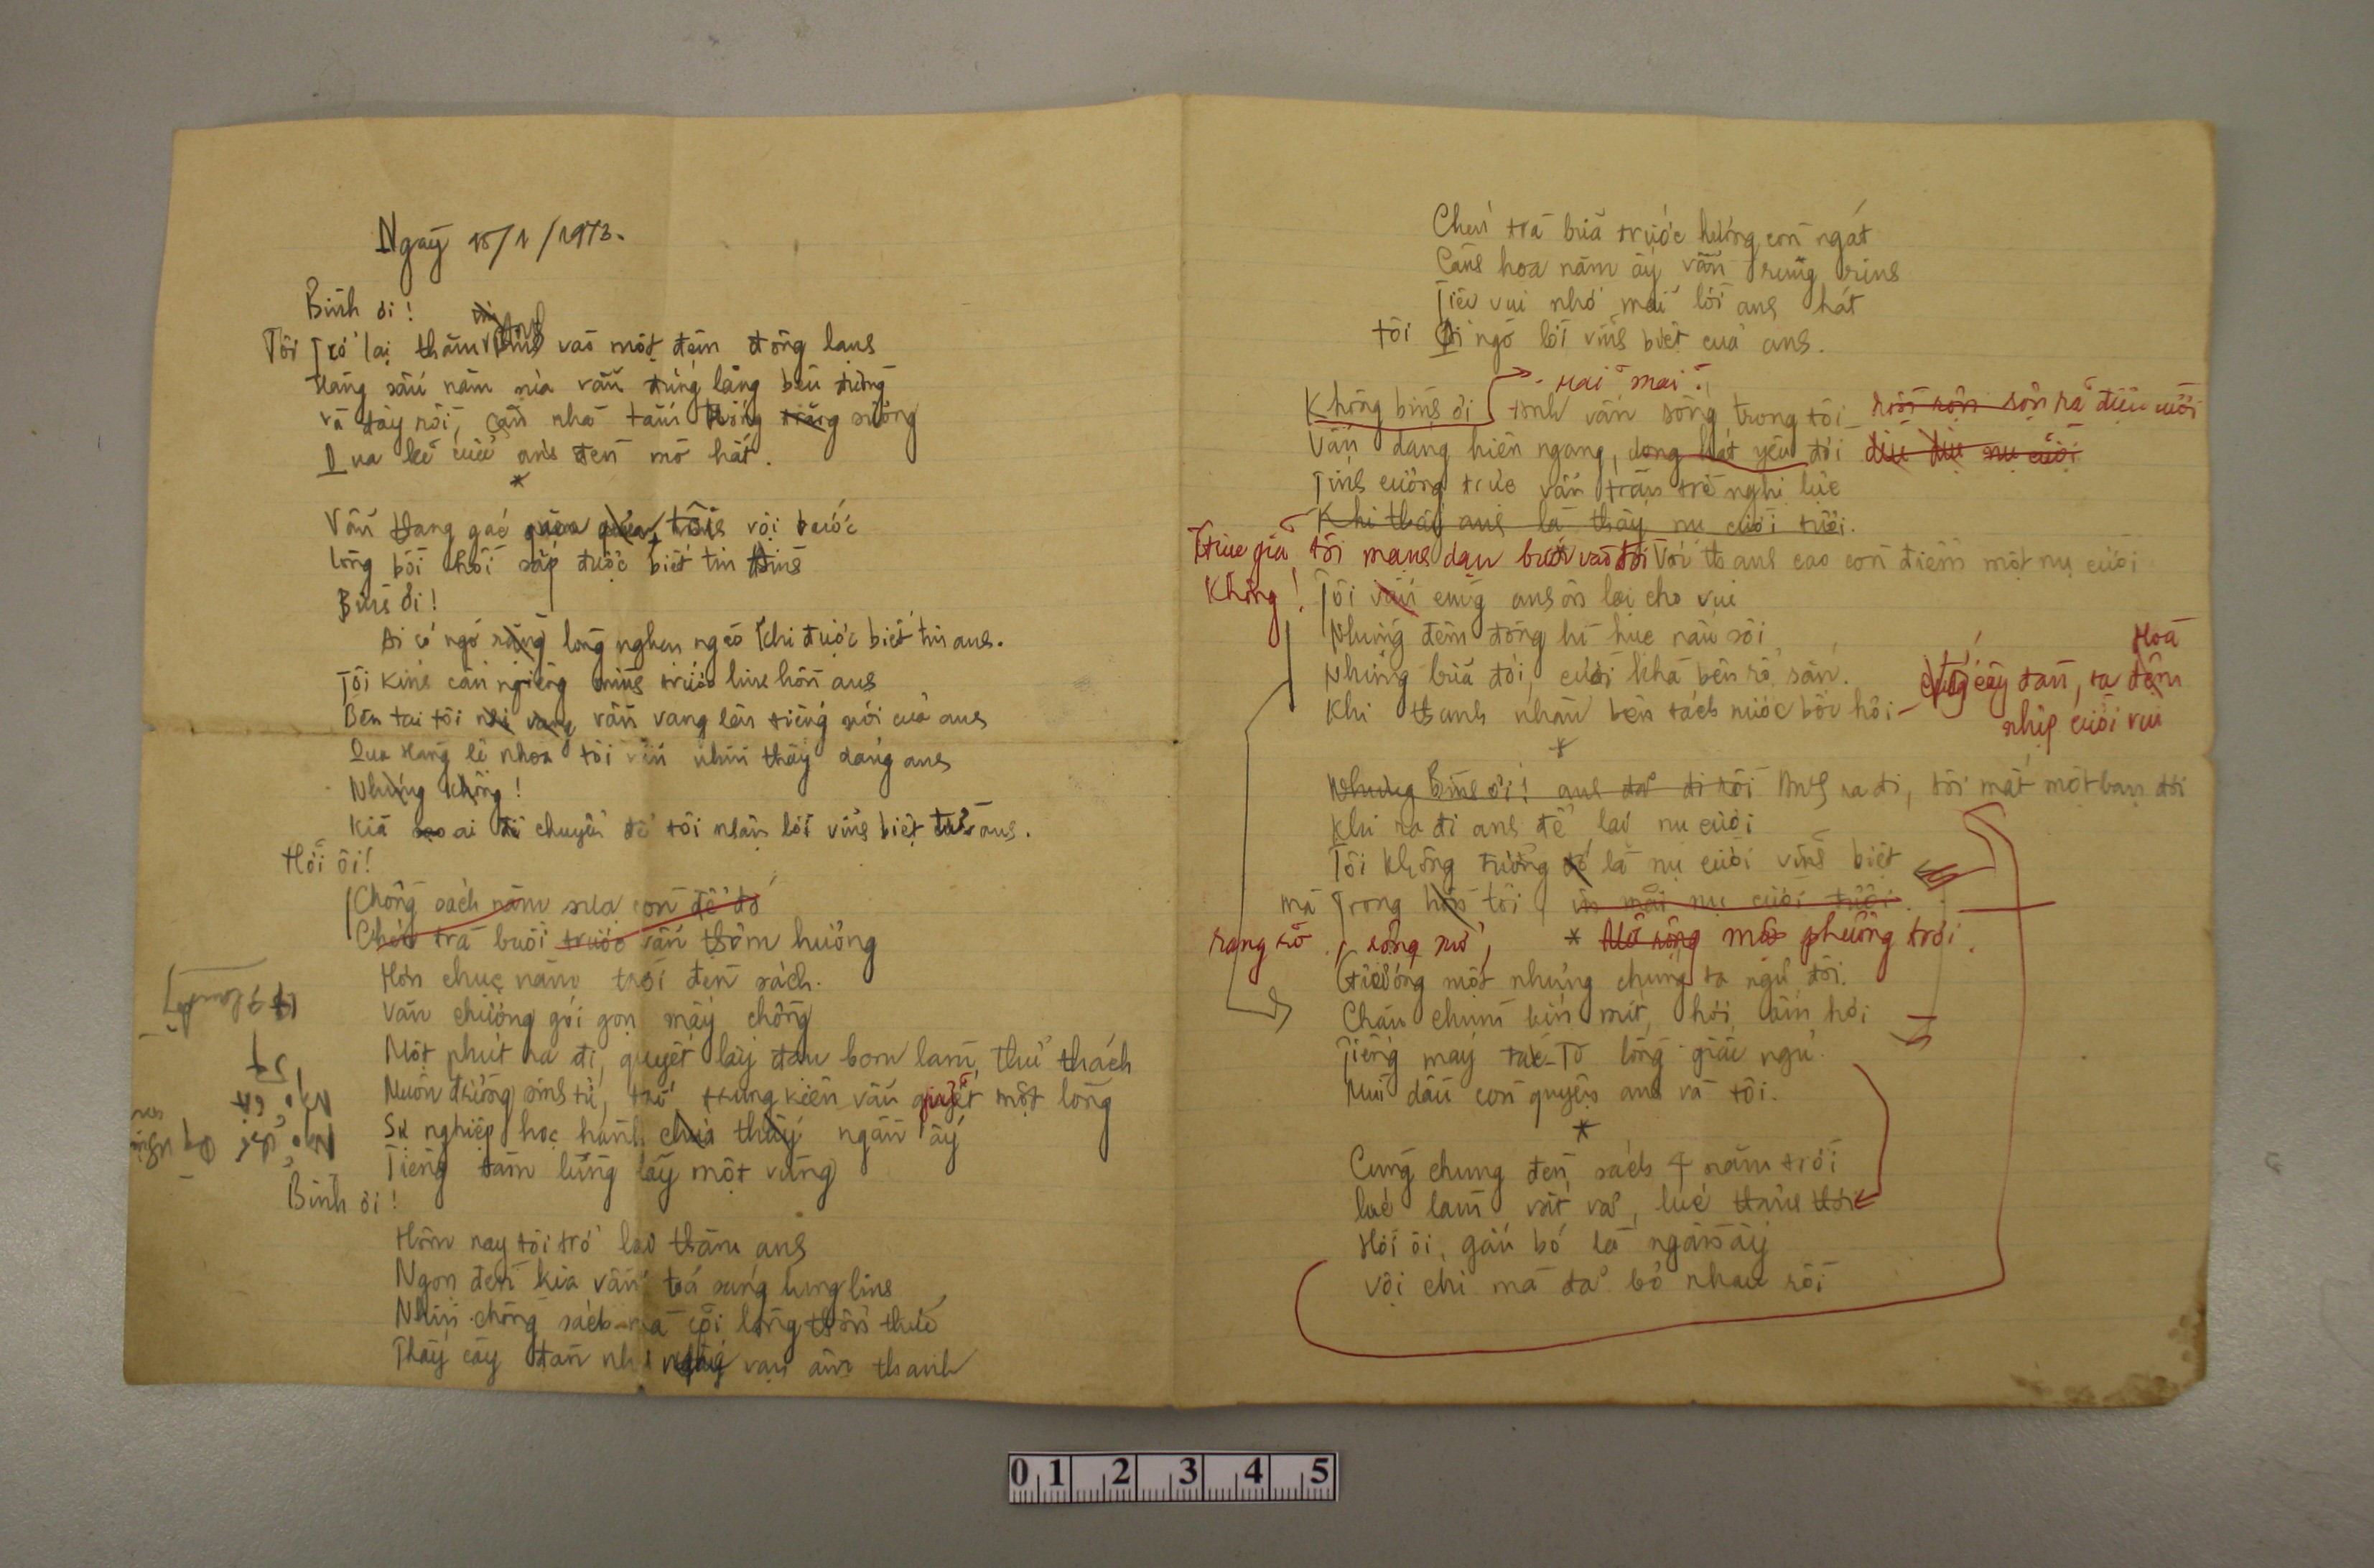 Ngày 15/1/1973.
Bình ơi!
Tôi Trở lại thăm anh vào một đêm đông lạnh
Hàng sấu năm xưa vẫn đứng lặng bên đường
Và đây rồi, căn nhà tắm trong sương
Qua kẽ cửa ánh đèn mờ hắt.
*
Vẫn thang gác quen, tôi vội bước
lòng bồi hồi sắp được biết tin
Bình ơi!
Ai có ngờ rằng lòng nghẹn ngào khi được biết tin anh.
Tôi kính cẩn nghiêng mình trước linh hồn anh
Bên tai tôi vẫn vang lên tiếng nói của anh
Qua Hàng lệ nhoà tôi vẫn nhìn thấy dáng anh
Nhưng không!
Kìa sao ai đi chuyển để tôi nhận lời vĩnh biệt anh.
Hỡi ôi!
Chồng sách năm xưa còn để đó
Chén trà buổi trước vẫn thơm hương
Hơn chục năm trời đèn sách.
Văn chương gói gọn mấy chồng
Một phút ra đi, quyết lấy đạn bom làm thử thách
Muôn đường sinh tử, trở trung kiên vẫn quyết một lòng
Sự nghiệp học hành chưa thấy ngần ấy
Tiếng tăm lừng lẫy một vùng
Bình ơi!
Hôm nay tôi trở lại thăm anh
Ngọn đèn kia vẫn toả sáng lung linh
Nhìn chồng sách mà cõi lòng thổn thức
Thấy cây đàn như ngàn vạn âm thanh
17
Chén trà bữa trước hương còn ngát
Cành hoa năm ấy vẫn rung rinh
Tiếu vui nhớ mãi lời anh hát
tôi Có ngờ lời vĩnh biệt của anh.
Không bình ơi mãi mãi! anh vẫn sống trong tôi rộn rã điệu cười
Vẫn dáng hiên ngang, lòng hát yêu đời dịu dịu nụ cười
Tính cương trực vẫn tràn trề nghị lực
Khi thấy anh là thấy nụ cười tươi.
tôi mạnh dạn bước vào đời Với thanh cao còn điểm một nụ cười
Không! Tôi vẫn cùng anh ôn lại cho vui
Những đêm đông hì hục nấu sôi
Những bữa đói, cười khà bên rổ sắn.
Khi thanh nhàn bên tách nước bồi hồi - cây đàn, ta đệm Hoà
nhịp cười vui
*
Nhưng Bình ơi! anh đã đi rồi Anh ra đi, tôi mất một bạn đời
Khi ra đi anh để lại nụ cười
Tôi không tưởng đó là nụ cười vĩnh biệt
mà Trong hồn tôi in mãi nụ cười tươi.
rạng rỡ, sông núi, * Mở rộng một phương trời.
Giường một nhưng chúng ta ngủ đôi.
Chăn chùm kín mít, hơi kín hơi
Tiếng máy tắc-Tơ lồng giấc ngủ.
Mùi dầu còn quyện anh và tôi.
*
Cùng chung đèn sách 4 năm trời
lúc làm vất vả, lúc thảnh thơi
Hỡi ôi, gắn bó là ngần ấy
Vội chi mà đã bỏ nhau rồi
0 1 2 3 4 5